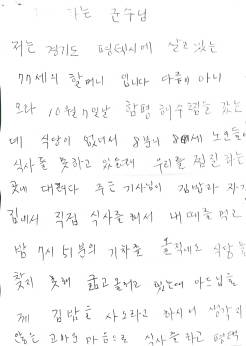 하는 군수님
저는 경기도 평택시에 살고있는
77세의 할머니 입니다 다름이 아니
오라 10월 7일날 함평 해수찜을 갔는
데 식당이 없어서 8분니 80세 노인들이
식사를 못하고 있는데 우리를 찜질하는
곳에 대려다 주는 기사님이 김밥과 자기
집에서 직접 식사를 해서 내때를 먹고
밤 7시 51분의 기차를 올적에도 식당을
찾지 못해 굶고 올려고 했는데 아드님을
께 김밥을 사오라고 하시어 생각지
않는 고마운 마음으로 식사를 하고 평택